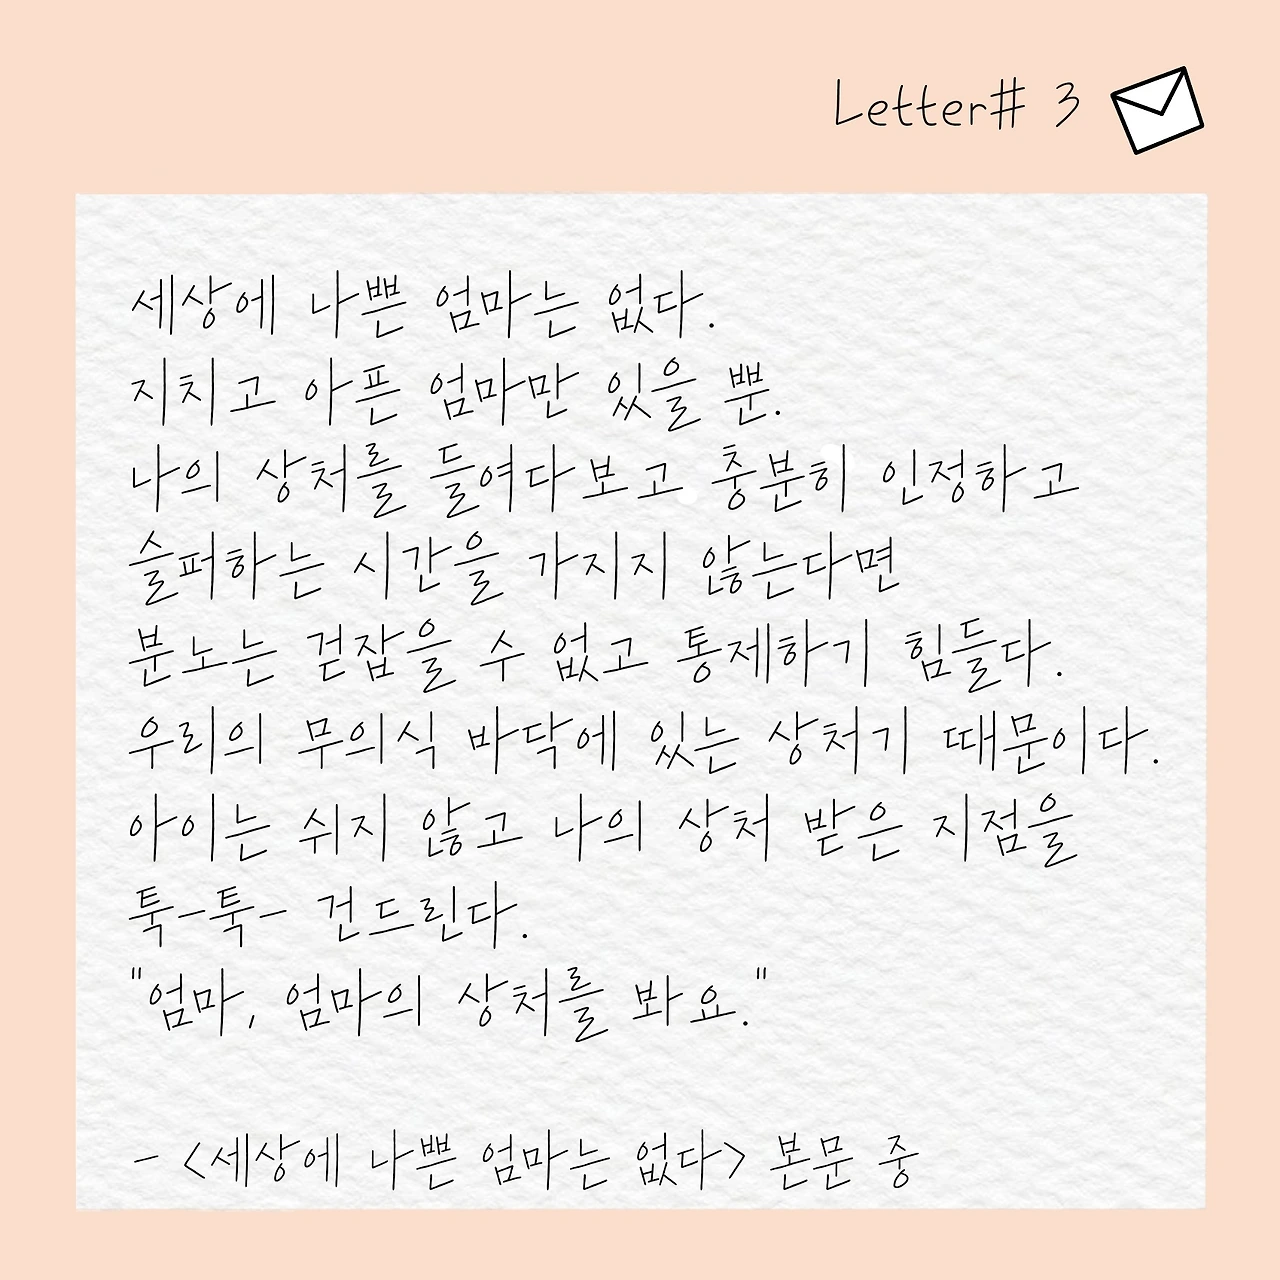 Letter# 3
세상에 나쁜 엄마는 없다.
지치고 아픈 엄마만 있을 뿐.
나의 상처를 들여다보고 충분히 인정하고
슬퍼하는 시간을 가지지 않는다면
분노는 걷잡을 수 없고 통제하기 힘들다.
우리의 무의식 바닥에 있는 상처기 때문이다.
아이는 쉬지 않고 나의 상처 받은 지점을
툭-툭- 건드린다.
"엄마, 엄마의 상처를 봐요."
- <세상에 나쁜 엄마는 없다> 본문 중